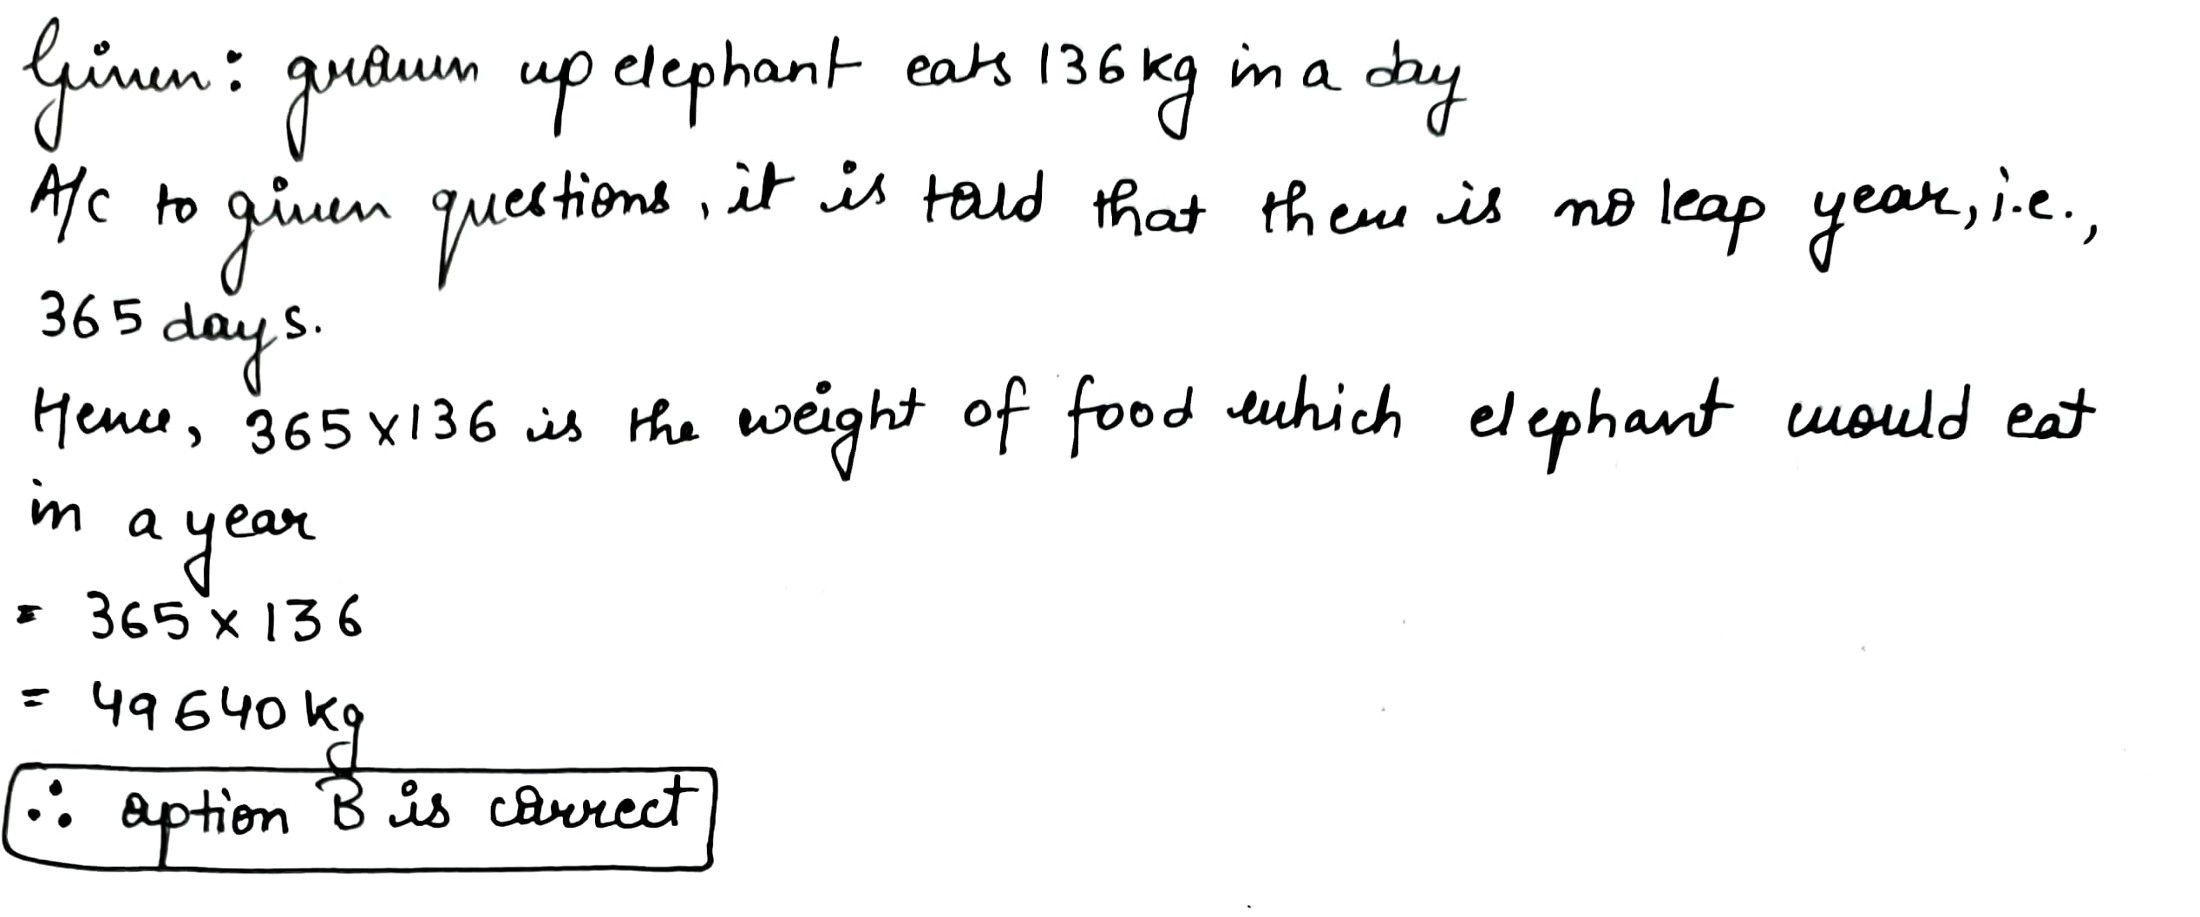 Given: grown up elephant eats 136 kg in a day
A/c to given questions, it is told that there is no leap year, i.e.,
365 days.
Hence, 365 x 136 is the weight of food which elephant would eat
in a year
= 365 x 136
= 49640 kg
∴ option B is correct